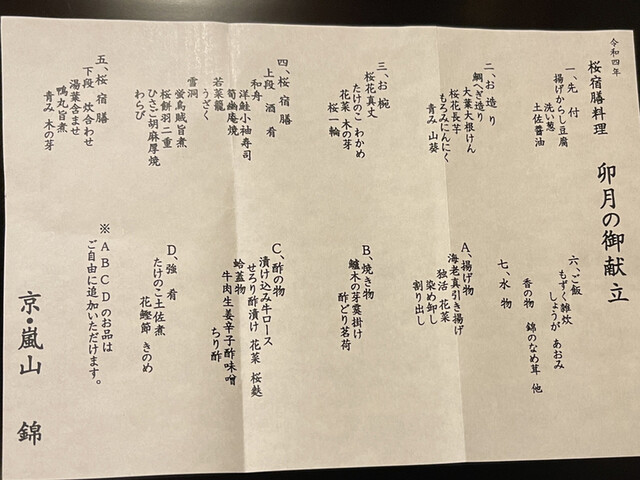 令和四年
桜宿膳料理 卯月の御献立
一、先 付
揚げからし豆腐
洗い葱
土佐醤油
二、お造り
鯛へぎ造り
大葉大根けん
桜花長芋
もろみにんにく
青み 山葵
三、お椀
桜花真丈
たけのこ わかめ
花菜 木の芽
桜一輪
四、桜 宿 膳
上段 酒 肴
和舟
洋鮭小袖寿司
筍幽庵焼
うざく
若菜籠
雪洞
蛍烏賊旨煮
桜餅羽二重
ひさご胡麻厚焼
わらび
五、桜 宿 膳
下段 炊合わせ
湯葉含ませ
鴨丸旨煮
青み 木の芽
六、ご飯
もずく雑炊
しょうが あおみ
香の物 錦のなめ茸 他
七、水 物
A、揚げ物
海老真引き揚げ
独活 花菜
染め卸し
割り出し
B、焼き物
鱸木の芽糞掛け
酢どり茗荷
C、酢の物
漬け込み牛ロース
せろり酢漬け 花菜 桜麩
蛤蓋物
牛肉生姜辛子酢味噌
ちり酢
D、強 肴
たけのこ土佐煮
花鰹節 きのめ
※ABCDのお品は
ご自由に追加いただけます。
京・嵐山 錦